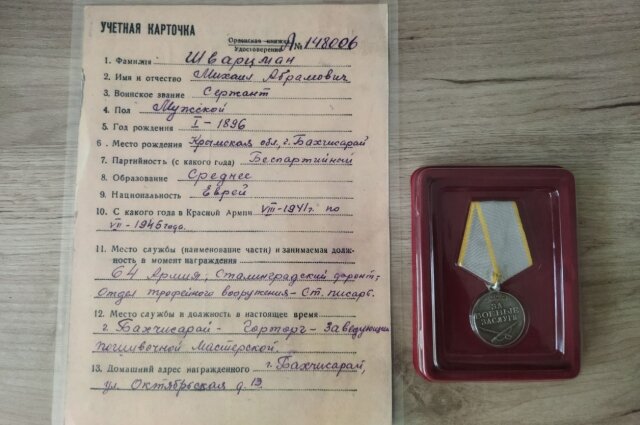 УЧЕТНАЯ КАРТОЧКА
Орденская книжка
Удостоверение А № 148006
1. Фамилия Шварцман
2. Имя и отчество Михаил Абрамович
3. Воинское звание Сержант
4. Пол Мужской
5. Год рождения I - 1896
6. Место рождения Крымская обл, г. Бахчисарай
7. Партийность (с какого года) Беспартийный
8. Образование Среднее
9. Национальность Еврей
10. С какого года в Красной Армии VIII-1941г. по
VII-1946 года.
11. Место службы (наименование части) и занимаемая долж-
ность в момент награждения
64 Армия, Сталинградский фронт,
Отдел трофейного вооружения - Ст. писарь.
12. Место службы и должность в настоящее время
г. Бахчисарай - Горторг - Заведующий
пошивочной Мастерской.
13. Домашний адрес награжденного г. Бахчисарай,
ул. Октябрьская д. 13.
ЗА
БОЕВЫЕ
ЗАСЛУГИ